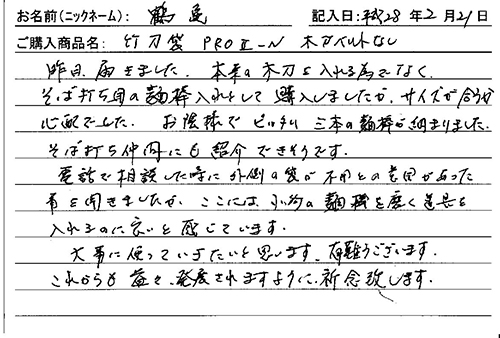 お名前(ニックネーム): 鶴亀 記入日: 平成28年2月21日
ご購入商品名: 竹刀袋 PROⅡ-N 木刀ベルトなし
昨日、届きました。本来の木刀を入れる為でなく、
そば打ち用の麺棒入れとして購入しましたが、サイズが合うか
心配でした。お陰様でピッタリ三本の麺棒が納まりました。
そば打ち仲間にも紹介できそうです。
電話で相談した時に外側の袋が不用との意見があった
事を聞きましたが、ここには小物の麺棒を磨く道具を
入れるのに良いと感じています。
大事に使っていきたいと思います。有難うございます。
これからも益々、発展されますように、祈念致します。